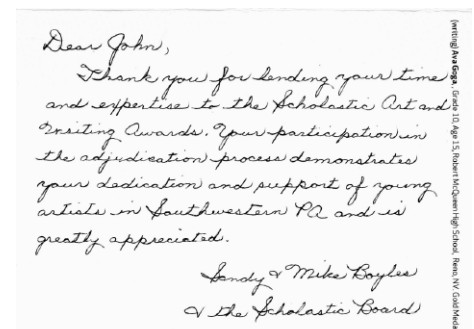 Dear John,
Thank you for lending your time
and expertise to the Scholastic Art and
Writing Awards. Your participation in
the adjudication process demonstrates
your dedication and support of young
artists in Southwestern PA and is
greatly appreciated.
Sandy & Mike Boyles
& the Scholastic Board
(writing) Ava Goga, Grade 10, Age 15, Robert McQueen High School, Reno, NV. Gold Meda